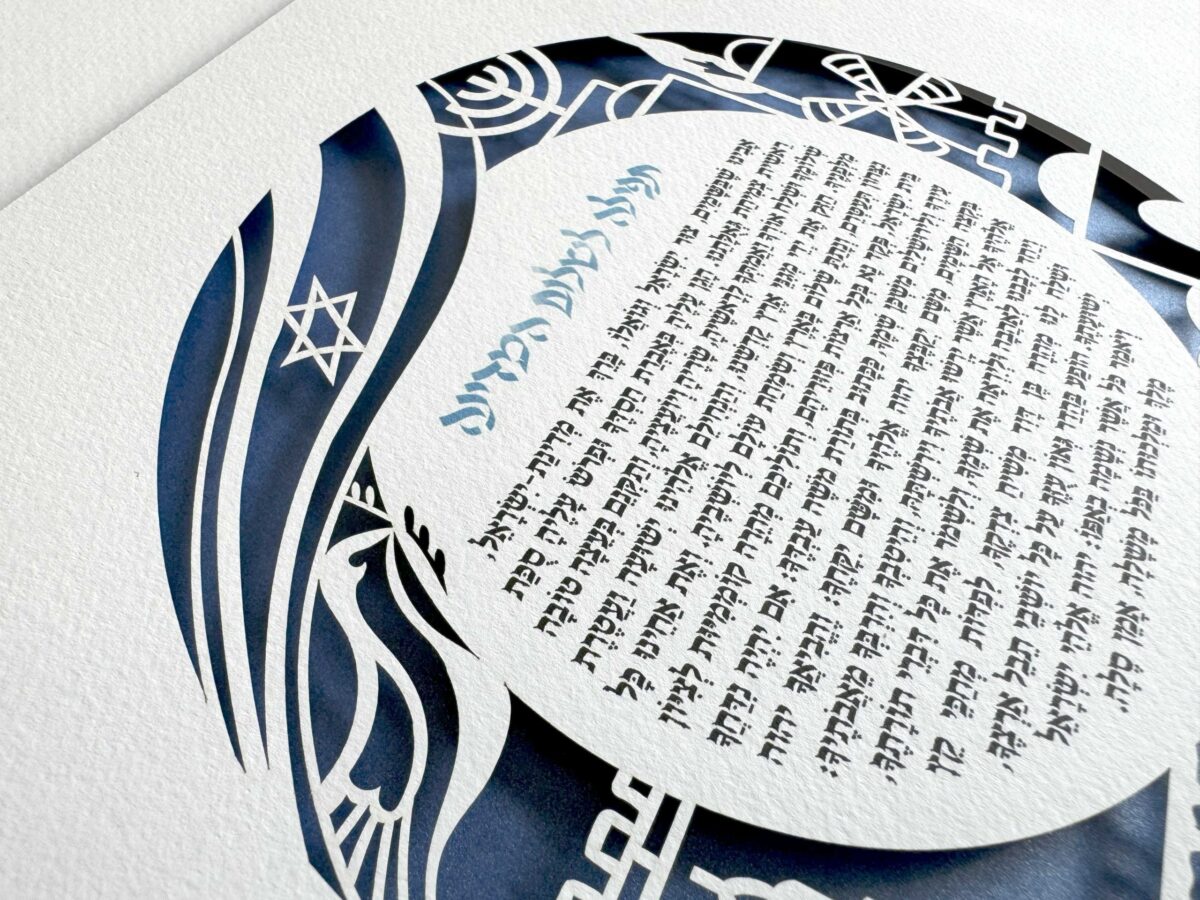 תפילה לשלום המדינה
אָבִינוּ שֶׁבַּשָּׁמַיִם, צוּר יִשְׂרָאֵל וְגוֹאֲלוֹ, בָּרֵךְ אֶת מְדִינַת-יִשְׂרָאֵל,
רֵאשִׁית צְמִיחַת גְּאֻלָּתֵנוּ. הָגֵן עָלֶיהָ בְּאֶבְרַת חַסְדֶּךָ וּפְרֹשׂ עָלֶיהָ סֻכַּת
שְׁלוֹמֶךָ וּשְׁלַח אוֹרְךָ וַאֲמִתְּךָ לְרָאשֶׁיהָ, שָׂרֶיהָ וְיוֹעֲצֶיהָ, וְתַקְּנֵם בְּעֵצָה טוֹבָה
מִלְּפָנֶיךָ. חַזֵּק אֶת יְדֵי מְגִנֵּי אֶרֶץ קָדְשֵׁנוּ, וְהַנְחִילֵם אֱלֹהֵינוּ יְשׁוּעָה וַעֲטֶרֶת
נִצָּחוֹן תְּעַטְּרֵם, וְנָתַתָּ שָׁלוֹם בָּאָרֶץ וְשִׂמְחַת עוֹלָם לְיוֹשְׁבֶיהָ. וְאֶת אַחֵינוּ כָּל
בֵּית יִשְׂרָאֵל, פְּקֹד נָא בְּכָל אַרְצוֹת פְּזוּרֵיהֶם, וְתוֹלִיכֵם מְהֵרָה קוֹמְמִיּוּת לְצִיּוֹן
עִירֶךָ וְלִירוּשָׁלַיִם מִשְׁכַּן שְׁמֶךָ, כַּכָּתוּב בְּתוֹרַת מֹשֶׁה עַבְדֶּךָ: אִם יִהְיֶה נִדַּחֲךָ
בִּקְצֵה הַשָּׁמַיִם, מִשָּׁם יְקַבֶּצְךָ יהוה אֱלֹהֶיךָ וּמִשָּׁם יִקָּחֶךָ: וֶהֱבִיאֲךָ יהוה
אֱלֹהֶיךָ אֶל הָאָרֶץ אֲשֶׁר יָרְשׁוּ אֲבֹתֶיךָ וִירִשְׁתָּהּ, וְהֵיטִבְךָ וְהִרְבְּךָ מֵאֲבֹתֶיךָ:
וְיַחֵד לְבָבֵנוּ לְאַהֲבָה וּלְיִרְאָה אֶת שְׁמֶךָ וְלִשְׁמֹר אֶת כָּל דִּבְרֵי תּוֹרָתֶךָ,
וּשְׁלַח לָנוּ מְהֵרָה בֶּן דָּוִד מְשִׁיחַ צִדְקֶךָ, לִפְדּוֹת מְחַכֵּי קֵץ
יְשׁוּעָתֶךָ. הוֹפַע בַּהֲדַר גְּאוֹן עֻזֶּךָ עַל כָּל יוֹשְׁבֵי תֵּבֵל אַרְצֶךָ,
וְיֹאמַר כֹּל אֲשֶׁר נְשָׁמָה בְּאַפּוֹ: יהוה אֱלֹהֵי יִשְׂרָאֵל
מֶלֶךְ וּמַלְכוּתוֹ בַּכֹּל מָשָׁלָה. אָמֵן סֶלָה.